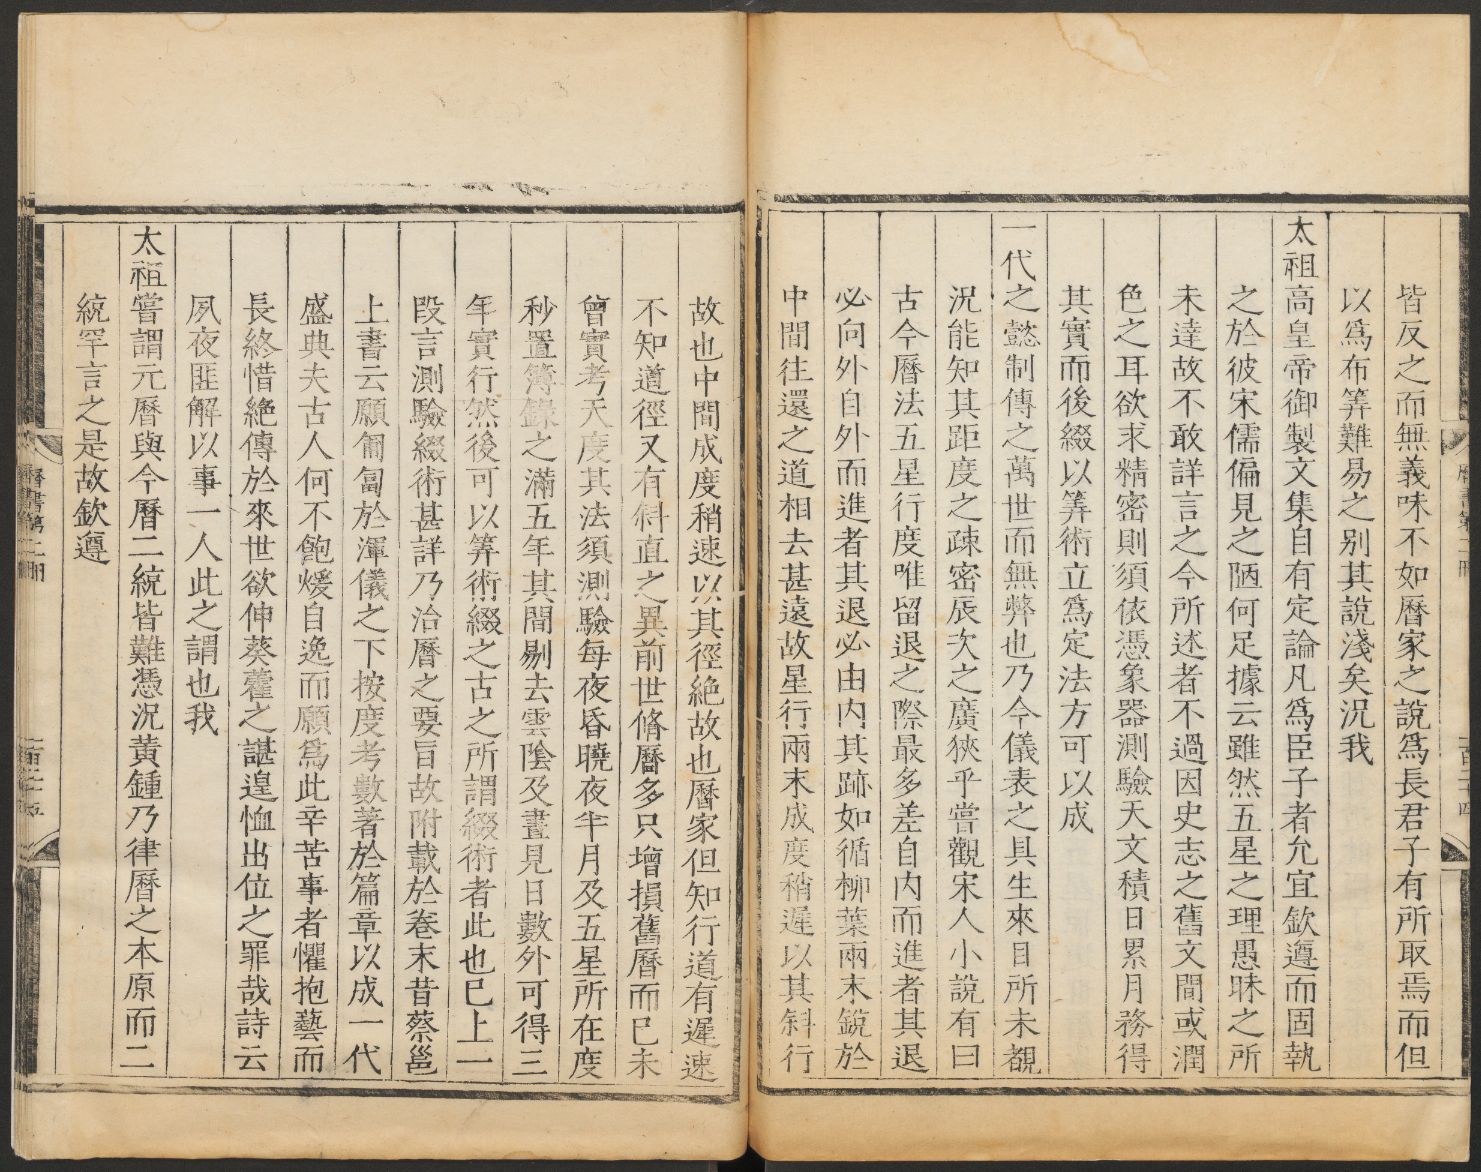 皆反之而無義味不如曆家之說爲長君子有所取焉而但
以爲布筭難易之别其說淺矣況我
太祖高皇帝御製文集自有定論凡爲臣子者允宜欽遵而固執
之於彼宋儒偏見之陋何足據云雖然五星之理愚昧之所
未達故不敢詳言之今所述者不過因史志之舊文間或潤
色之耳欲求精密則須依憑象器測驗天文積日累月務得
其實而後綴以筭術立爲定法方可以成
一代之懿制傳之萬世而無弊也乃今儀表之具生來目所未覩
況能知其距度之疎密辰次之廣狹乎嘗觀宋人小說有曰
古今曆法五星行度唯留退之際最多差自内而進者其退
必向外自外而進者其退必由内其跡如循柳葉兩末銳於
中間往還之道相去甚遠故星行兩末成度稍遲以其斜行
故也中間成度稍速以其徑絶故也曆家但知行道有遲速
不知道徑又有斜直之異前世脩曆多只增損舊曆而已未
曾實考天度其法須測驗每夜昏曉夜半月及五星所在度
秒置簿錄之滿五年其間剔去雲陰及晝見日數外可得三
年實行然後可以筭術綴之古之所謂綴術者此也已上一
段言測驗綴術甚詳乃治曆之要旨故附載於卷末昔蔡邕
上書云願匍匐於渾儀之下按度考數著於篇章以成一代
盛典夫古人何不飽煖自逸而願爲此辛苦事者懼抱藝而
長終惜絶傳於來世欲伸葵藿之諶遑恤出位之罪哉詩云
夙夜匪解以事一人此之謂也我
太祖嘗謂元曆與今曆二統皆難憑況黄鍾乃律曆之本原而二
統罕言之是故欽遵
曆書第二冊
一百二十四
曆書第二冊
一百二十五